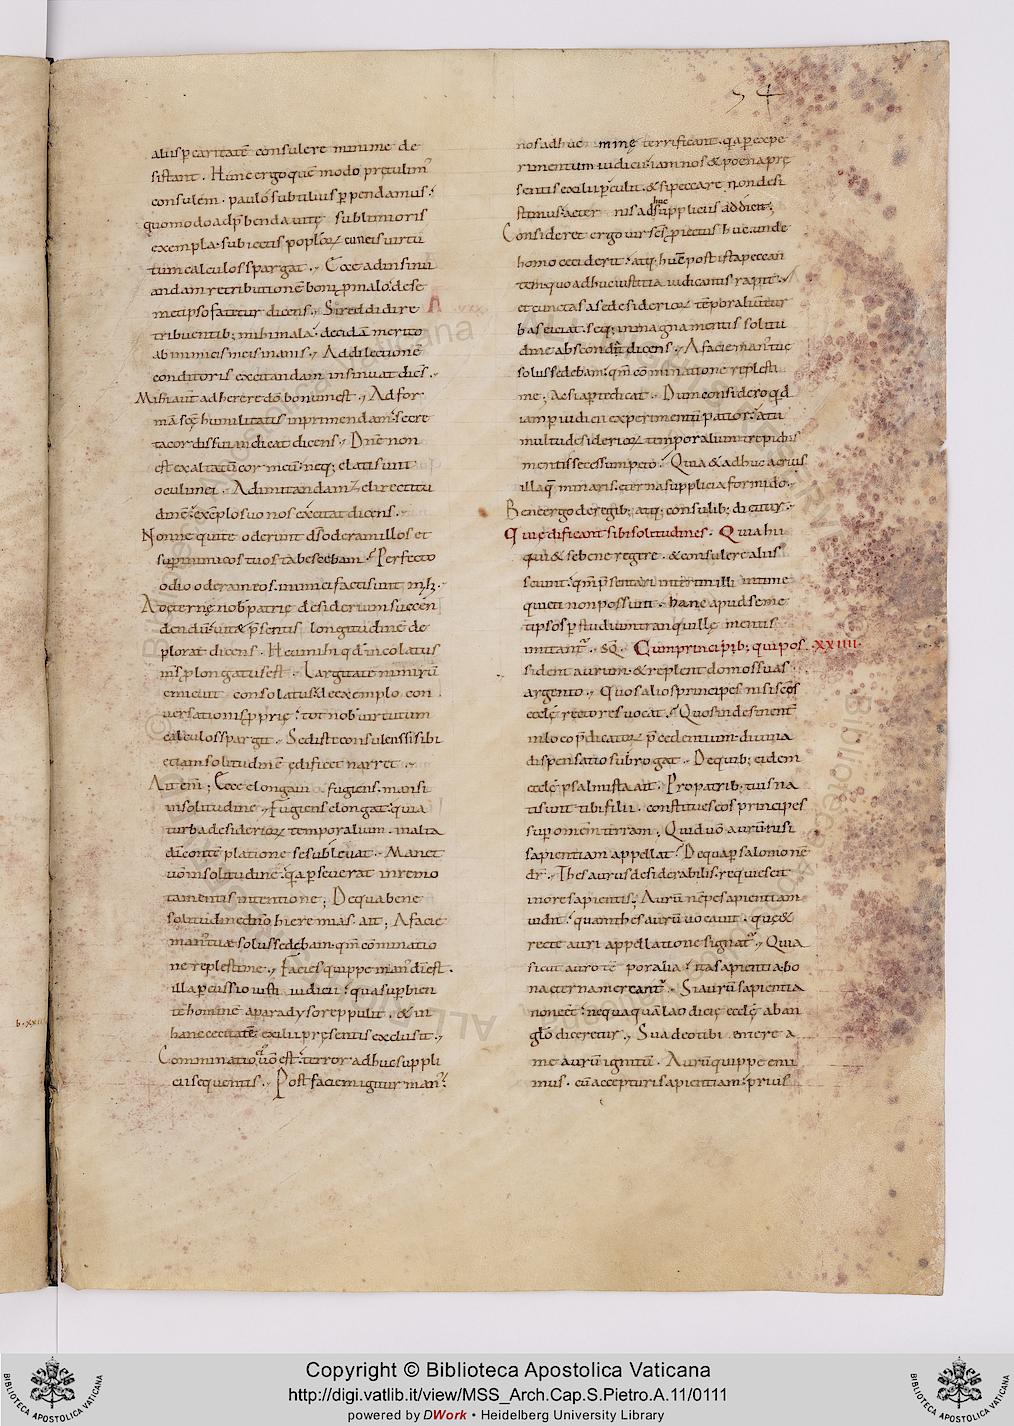 74
aliis p caritatē consulere minime de
sistant. Hunc ergo quē modo pretulim᾽
consulem. paulo subtilius ppendamus.
quomodo adphenda vitę sublimioris
exempla. subiectis poploꝝ cuneis virtu
tum calculos spargat. Ecce ad insinu
andam retributionē boni p malo: de se
met ipso fatetur dicens. Si reddidi re
tribuentib; mihi mala. decidā merito
ab inimicis meis inanis. Ad dilectionē
conditoris excitandam insinuat dicēs.
Mihi aūt adherere dō bonum est. Ad for
mā scę humilitatis inprimendam: secre
ta cordis sui indicat dicens. Dne non
est exaltatū cor meū. neq; elati sunt
oculi mei. Ad imitandam zeli rectitu
dinē: exēplo suo nos excitat dicens.
Nonne qui te oderunt ds oderam illos et
sup inimicos tuos tabescebam. Perfecto
odio oderam eos. inimici facti sunt m.
dendū: vitę psentis longitudinē de
plorat dicens. Heu mihi qd incolatus
m̄s plongatus est. Largitate nimirū
enicuit consolatus. qui exemplo con
versationis pprię: tot nob virtutum
calculos spargit. Sed iste consulens si sibi
etiam solitudinē ędificet narret.
Ait enī; Ecce elongavi fugiens. mansi
in solitudine. Fugiens elongat: quia
turba desiderioꝝ temporalium. in alta
dī contēplatione se sublevat. Manet
vō in solitudinē: q̄a pseverat in remo
ta mentis intentione; De qua bene
solitudine dn̄o hieremias. ait; A facie
man᾽ tuae solus sedebam. qm̄ cōminatio
ne replesti me. Facies quippe man᾽ dī est.
illa pcussio iusti iudicii: qua supbien
tē hominē a paradyso reppulit. & in
hanc cecitatē exilii presentis exclusit.
Comminatio vō est. terror adhuc suppli
cii sequentis. Post faciem igitur man᾽
nos adhuc minę terrificant. q̄a p expe
rimentum iudicii: iam nos & poena prę
sentis exilii pculit. & si peccare non desi
stimus: aeter nis adhuc suppliciis addicit;
Consideret ergo vir scs p iectus huc. unde
homo ceciderit: atq; hūc post ista peccan
tem quo adhuc iustitia iudicantis rapit.
et cunctas a se desiderioꝝ tēporaliū tur
bas eiciat. seq; in magna mentis solitu
dine abscondat. dicens. A facie man᾽ tuę
solus sedebam: qm̄ cōminatione replesti
me. Ac si apte dicat. Dum considero qd
iam p iudicii experimentū patior: a tu
multu desiderioꝝ temporalium trepidus
mentis secessum peto. Quia & adhuc acrius
illa q̄ minaris. eterna supplicia formido.
Bene ergo de regib; atq; consulib; dicitur.
Qui ędificant sibi solitudines. Quia hii
qui & se bene regere. & consulere aliis
sciunt: qm̄ psentari interim illi intime
quieti non possunt. hanc apud seme
tipsos p studium tranquillę mentis
imitant᾽. SQ. Cum principib; qui pos .XXIIII.
sident aurum. & replent domos suas
argento. Quos alios principes nisi scōs
ecclę rectores vocat. Quos indesinent᾽
in loco pdicatoꝝ pcedentium. divina
dispensatio subrogat. De quib; eidem
ecclę psalmista ait. Pro patrib; tuis na
ti sunt tibi filii. constitues eos principes
sup omēm terram. Quid vō aurū: nisi
sapientiam appellat: De qua p salomonē
dr̄. Thesaurus desiderabilis. requiescit
in ore sapientis; Aurū nēpe sapientiam
vidit: quam thesaurū vocavit. quę &
recte auri appellatione signat᾽. Quia
sicut auro tē poralia: ita sapientia bo
na eterna mercant᾽. Si aurū sapientia
non eēt: nequaquā laodicię ecclę ab an
glō diceretur. Suadeo tibi emere a
me aurū ignitū. Aurū quippe emi
mus. cū accepturi sapientiam: prius
Copyright © Biblioteca Apostolica Vaticana
http://digi.vatlib.it/view/MSS_Arch.Cap.S.Pietro.A.11/0111
powered by DWork • Heidelberg University Library
BIBLIOTECA APOSTOLICA VATICANA
BIBLIOTECA APOSTOLICA VATICANA